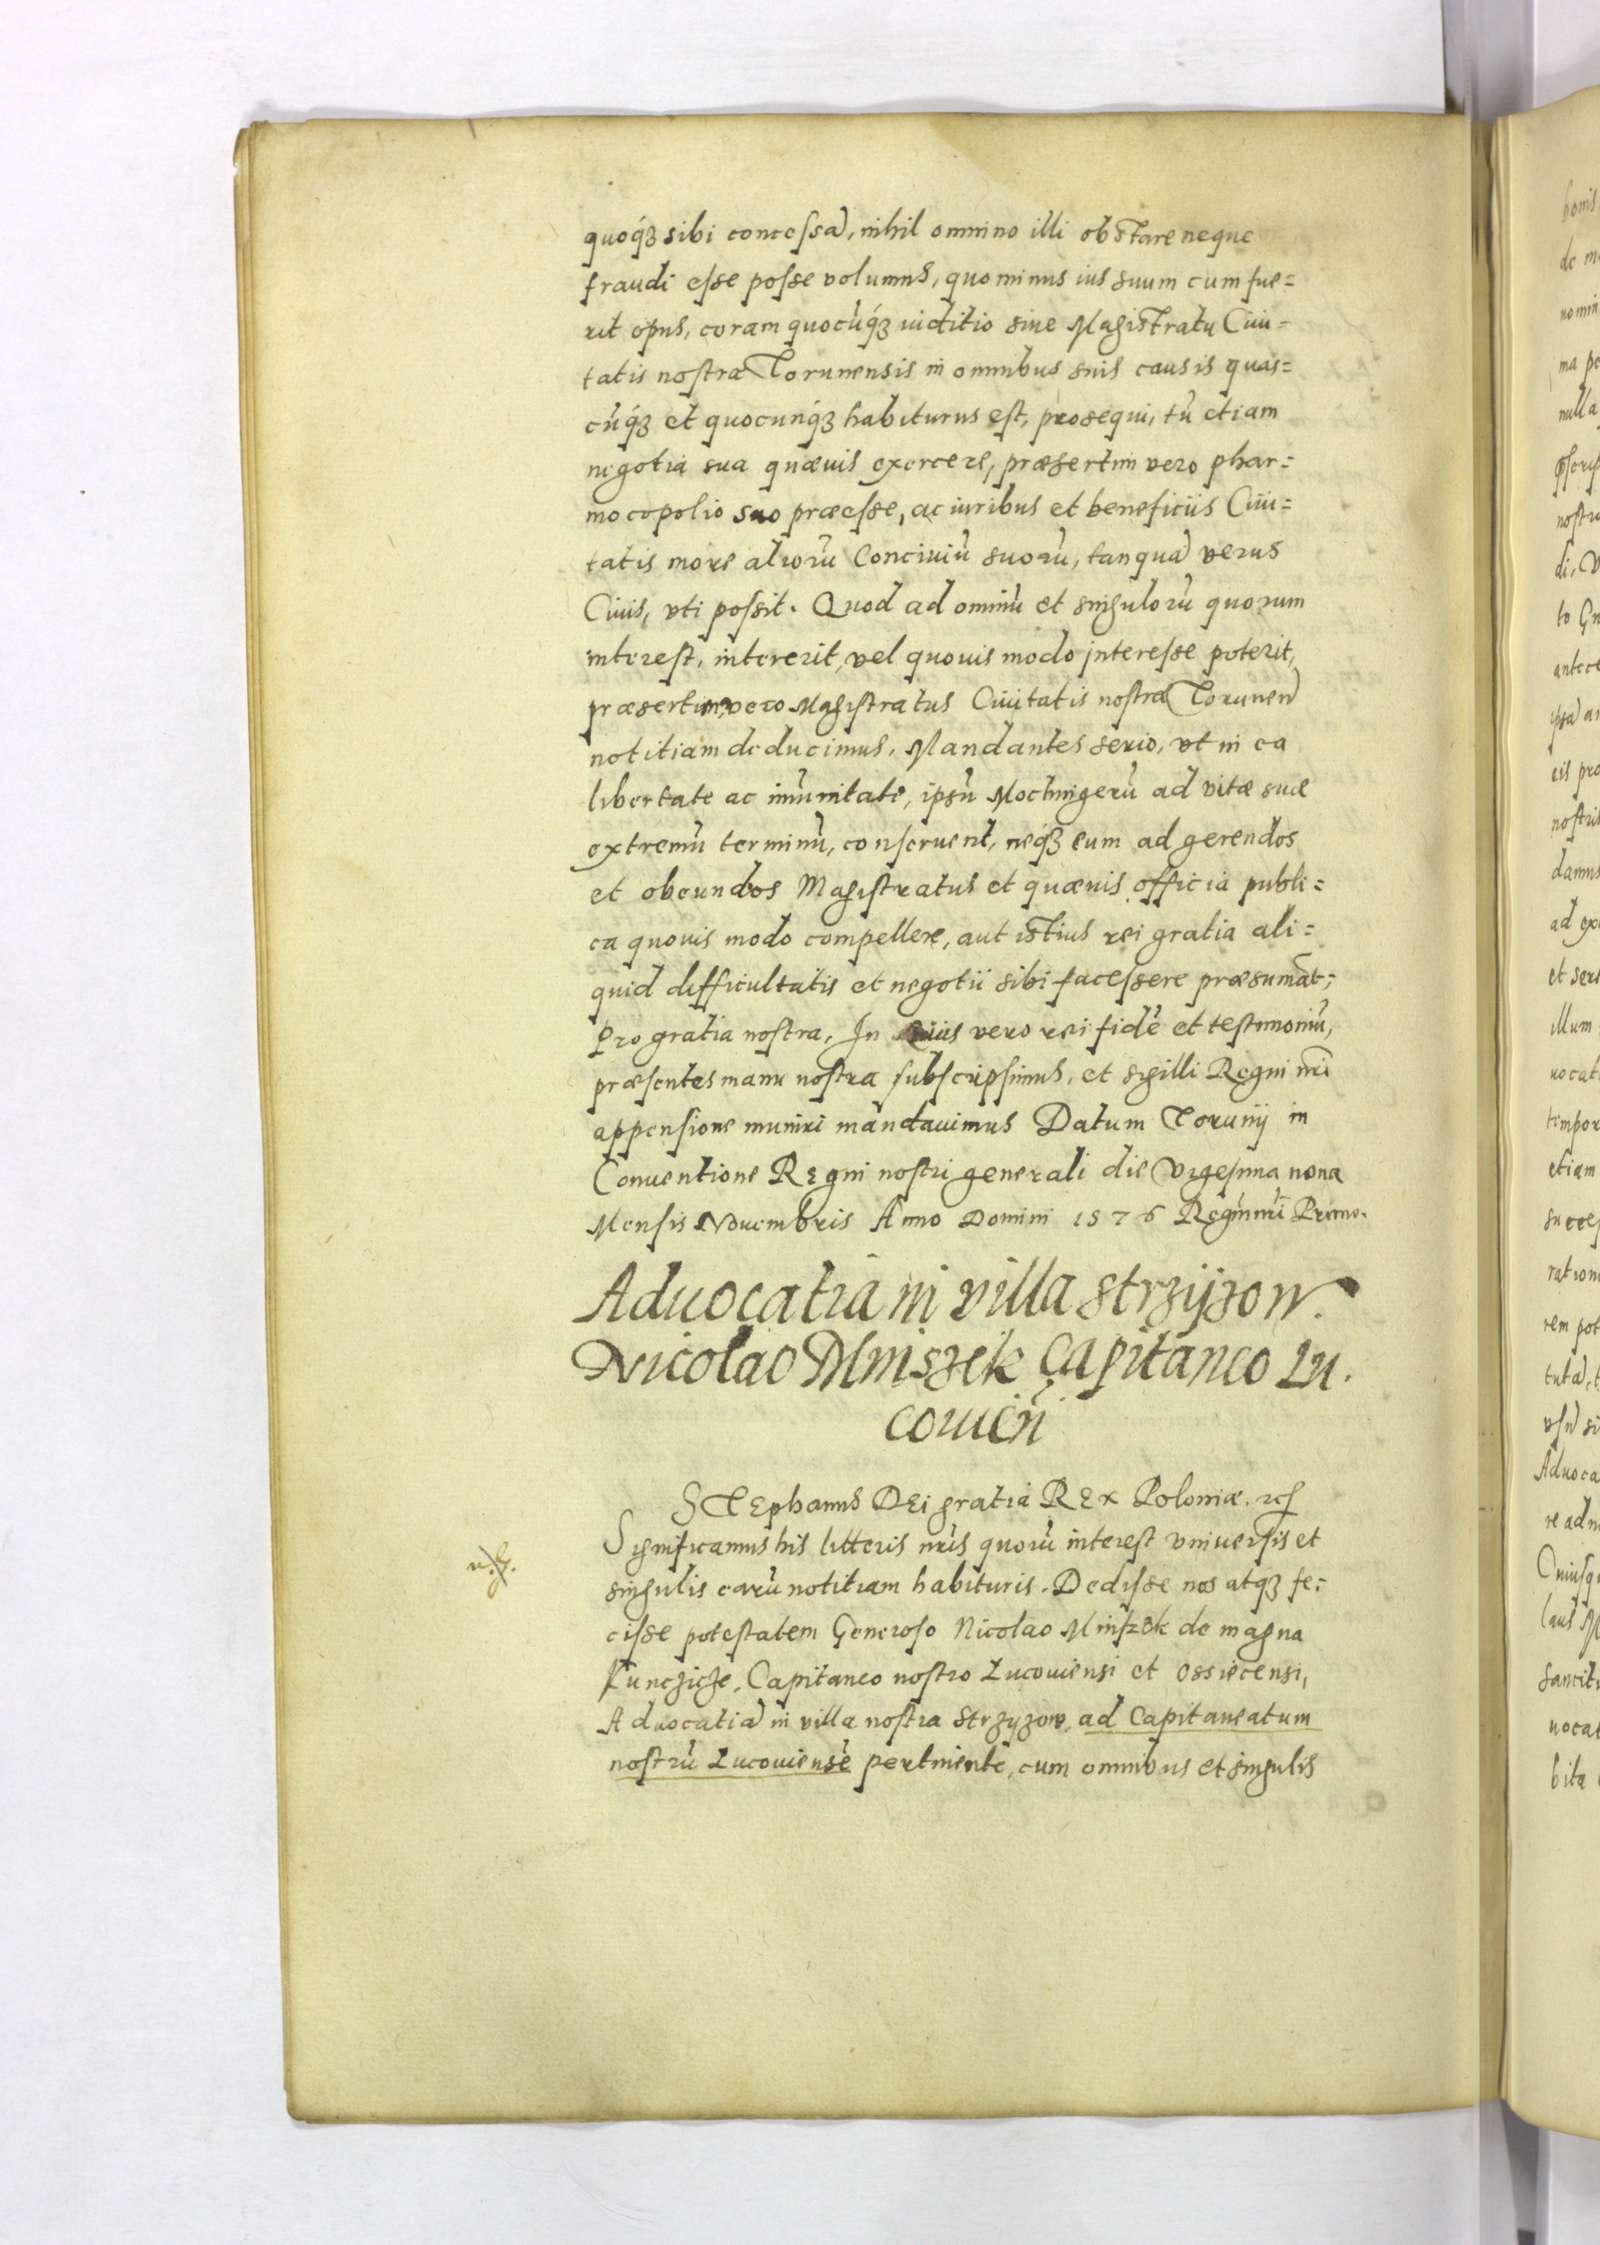 quoq́ꝫ sibi concessā, nihil omnino illi obstare neque
fraudi esse posse volumus, quominus ius suum cum fue=
rit opus, coram quocūq́ꝫ iuditio siue Magistratu Ciui=
tatis nostræ Torunensis in omnibus suis causis quas=
cūq́ꝫ et quocunq́ꝫ habiturus est, prosequi, tū etiam
negotia sua quæuis exercere, præsertim vero phar=
mocopolio suo præesse, ac iuribus et beneficiis Ciui=
tatis more aliorū Conciuiū suorū, tanquā verus
Ciuis, vti possit. Quod ad omniū et singulorū quorum
interest, intererit, vel quouis modo interesse poterit,
præsertim vero Magistratus Ciuitatis nostræ Torunen
notitiam deducimus, Mandantes serio, vt in ea
libertate ac imūnitate, ipsū Mochingerū ad vitæ suæ
extremū terminū, conseruent, neq́ꝫ eum ad gerendos
et obeundos Magistratus et quæuis officia publi=
ca quouis modo compellere, aut istius rei gratia ali=
quid difficultatis et negotii sibi facessere præsumāt;
Pro gratia nostra. In cuius vero rei fidē et testimoniū,
præsentes manu nostra subscripsimus, et sigilli Regni nri
appensione muniri mandauimus Datum Torunij in
Conuentione Regni nostri generali die Vigesima nona
Mensis Nouembris Anno Domini 1576 Regni nri Primo.
Aduocatia in villa Strzyzow.
Nicolao Mniszek Capitaneo Lu.
couień
Stephanus Dei gratia Rex Poloniæ. ꝛc̃
Significamus his litteris nris quorū interest vniuersis et
singulis earū notitiam habituris. Dedisse nos atqꝫ fe=
cisse potestatem Generoso Nicolao Mniszek de magna
Kunczicze, Capitaneo nostro Lucouiensi et Ossiecensi,
Aduocatiā in villa nostra Strzyzow, ad Capitaneatum
nostrū Lucouiensē pertinentē, cum omnibus et singulis